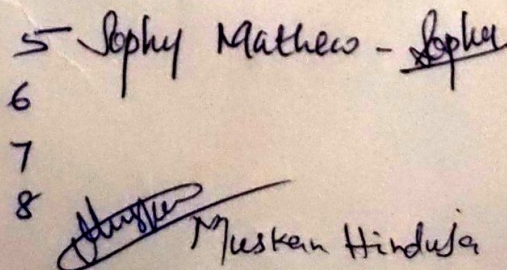 5 Sophy Mathew - Sophy
6
7
8 Muskan Hinduja